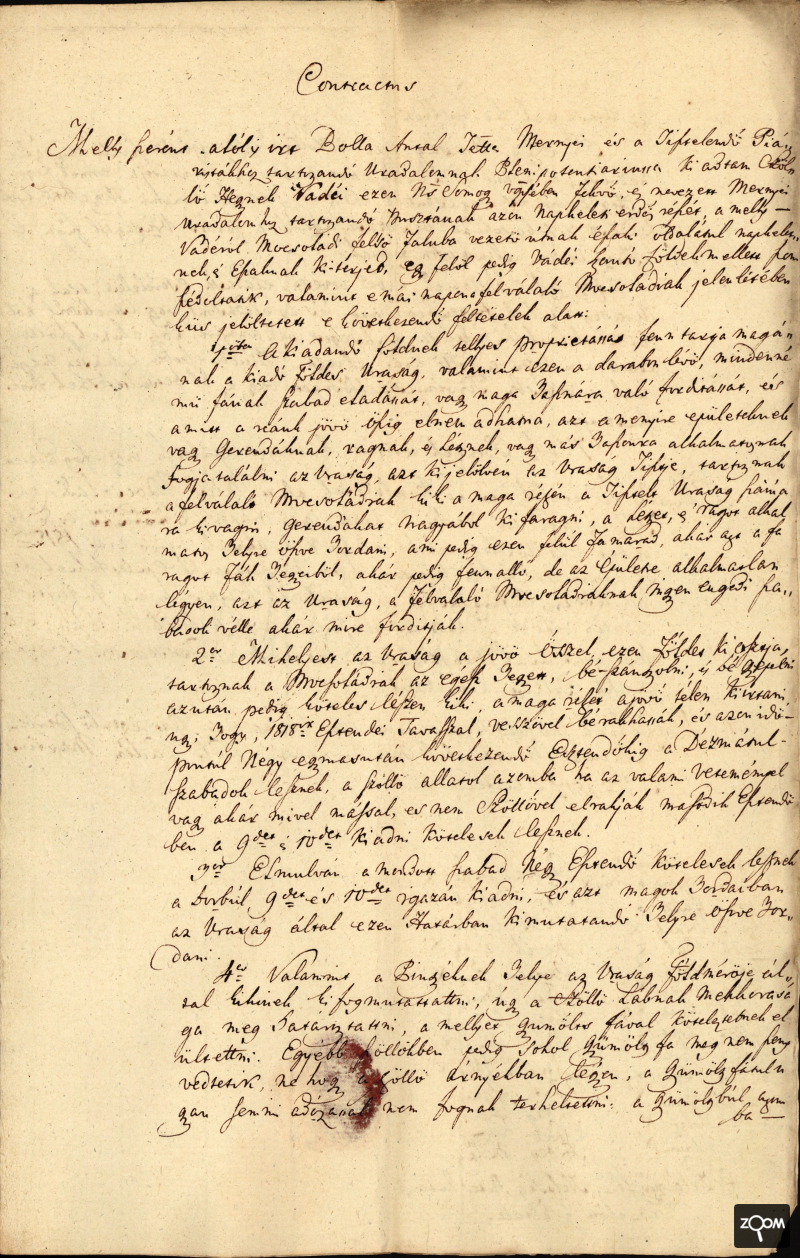 Contractus
Melly szerént alól irt Dolla Antal Tettes Mernyei és a Tisztelendő Piá„
ristákhoz tartozandó Uradalomnak Plenipotentiariussa Ki adtam Szőlő
Hegnek Vadéi ezen Ns Somog Vgyében fekvő, és nevezett Mernyei
Uradalomhoz tartozandó Pusztának azon Napkeleti erdős részét, a melly —
Vadéról Mocsoládi felső Faluba vezető útnak éjszaki oldalátul napkelet„
nek, s Ejszaknak ki-terjed, eg felöl pedig Vadéi szántó földek mellett
valamint e mái napon a felválaló Mocsoládiak jelenlétében
kiis jelöltetett e következendő feltételek alatt:
1ször A Kiadandó földnek tellyes Proprietássát fenn tartja magá„
nak a Kiadó Földes Uraság, valamint ezen a darabon lévő, mindenné
mű fának szabad eladássát, vagy maga Hasznára való fordítássát, és
amitt a reánk jövő őszig elnem adhatna, azt a menyire épületeknek
vagy Gerendáknak, ragnak, és Léznek, vagy más Haszonra alkalmatosnak
fogja találni az Uraság, azt kijelölvén az Uraság Tisztje, tartoznak
a felválaló Mocsoládiak kiki a maga részén a Tisztelt Uraság számá
ra kivágni, Gerendákat nagyából ki faragni, a Lézet, s ragot alkal
matos Helyre öszve hordani, ami pedig ezen felül famarad, akár azt a fa
ragott fák Hegyeiből, akár pedig fennálló, de az épületre alkalmatlan
légyen, azt az Uraság, a felválaló Mocsoládiaknak ingen engedi sza„
badok vélle akár mire fordítják.
2or Mihelyest az Uraság a jövő Ősszel, ezen Földet ki osztja,
tartoznak a Mocsoládiak az egész Hegyet, bé-sánczolni, és bé gyepülni
azután pedig köteles lészen kiki, a maga részét a jövő télen kiirtani,
úgy, hogy, 1818ik Esztendei Tavasszal, vesszővel bérakhassák, és azon idő„
ponttúl Négy egymásután következendő Esztendőkig a Dézmátul
szabadok lesznek, a szőllő allatol azomba ha az valami veteménnyel
vagy akár mivel mással, es nem Szőllővel elrakják második Esztendő
ben a 9det s 10det kiadni kötelesek lesznek.
3or Elmulván a mondott szabad Nég Esztendő kötelesek lesznek
a borbúl, 9det és 10det igazán kiadni, és azt magok Hordaiban
az Uraság által ezen Határban kimutatandó Helyre öszve hor„
dani.
4er Valamint a Pinczéknek Helye az Uraság Földmérője ál„
tal kikinek ki fogmutattattni, úg a Szőllő Lábnak Mekkorasá
ga meg határoztattni, a mellyet gyümölts fával köteleztetnek el
ültettni. Egyébb szőllőkben pedig sehol gyümölts fa meg nem szeny
vedtetik, ne hogy a szőllő árnyékban légyen, a gyümölts fátul u
gyan semmi adózással nem fognak terheltettni: a gyümöltsbül, azom
ba —
ZOOM